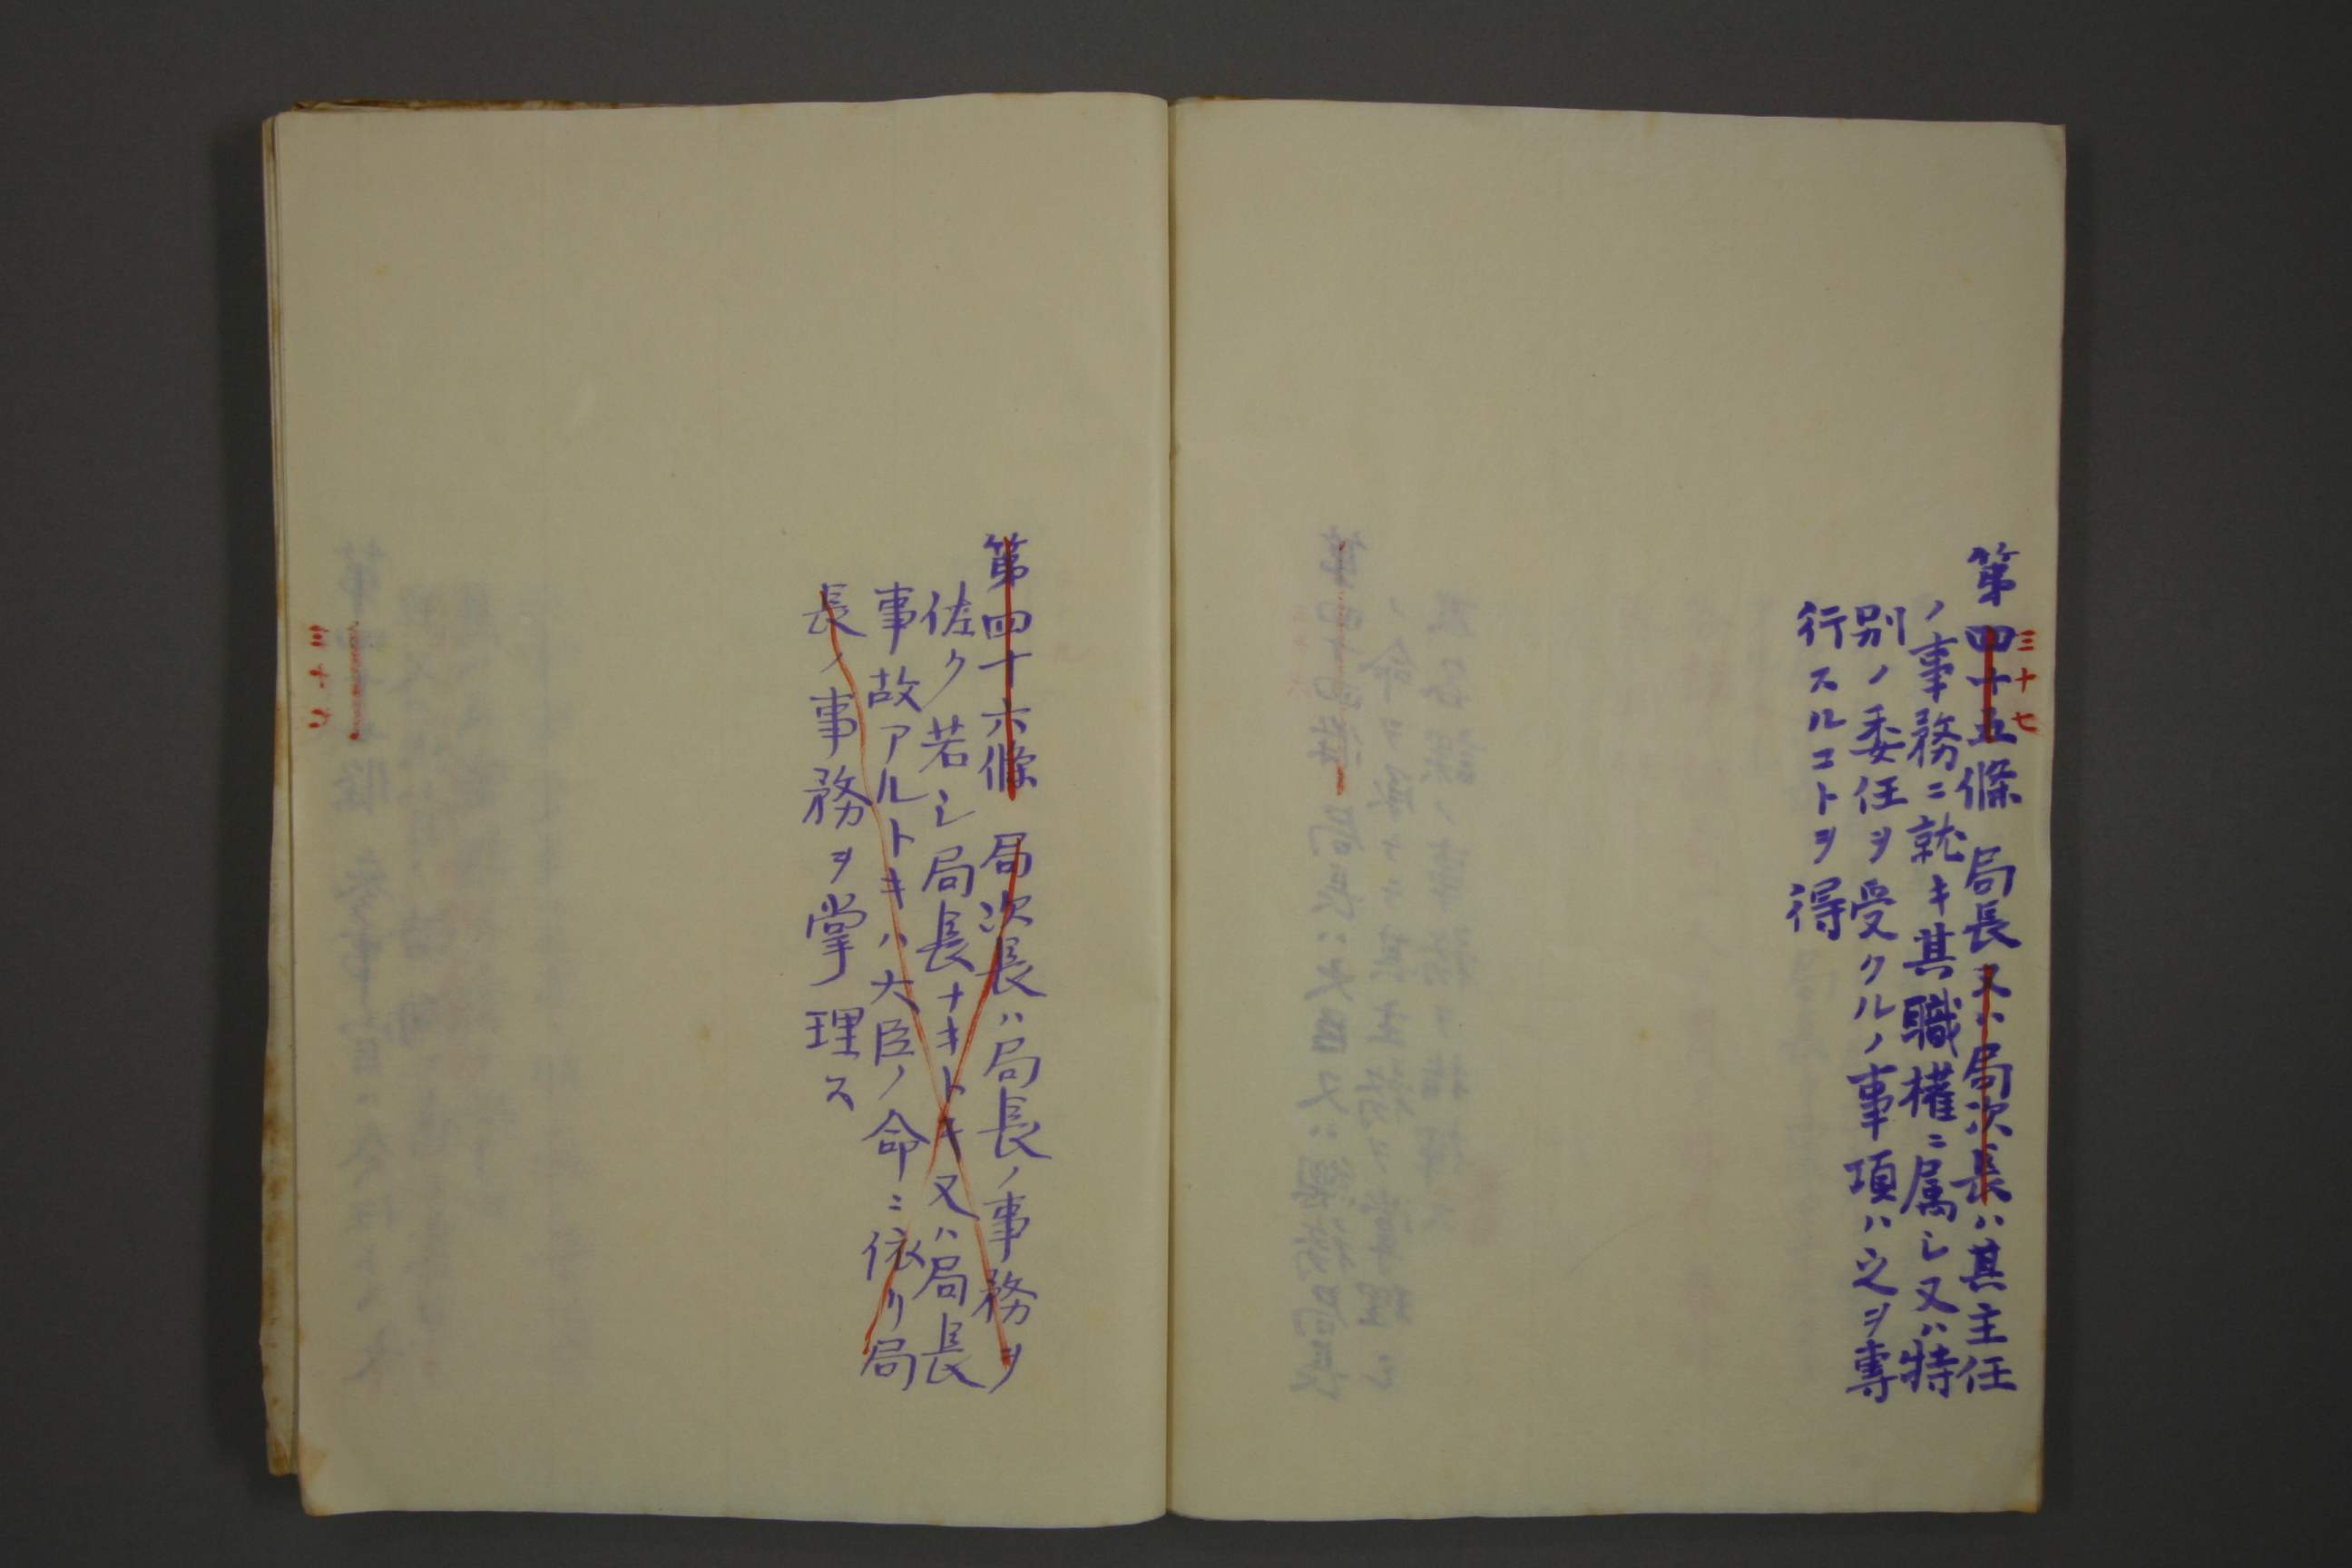 三十七
第四十五條 局長又ハ局次長ハ其主任
ノ事務ニ就キ其職權ニ属シ又ハ特
別ノ委任ヲ受クルノ事項ハ之ヲ専
行スルコトヲ得
第四十六條 局次長ハ局長ノ事務ヲ
佐ク若シ局長ナキトキ又ハ局長
事故アルトキハ大臣ノ命ニ依リ局
長ノ事務ヲ掌理ス